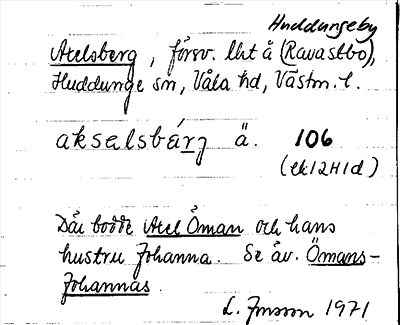 Huddungeby
Axelsberg, försv. lht å (Ravastbo),
Huddunge sn, Våla hd, Västm. l.
akselsbárj ä. 106
(ek12H1d)
Där bodde Axel Öman och hans
hustru Johanna. Se äv. Ömans-
Johannas.
L. Jonsson 1971